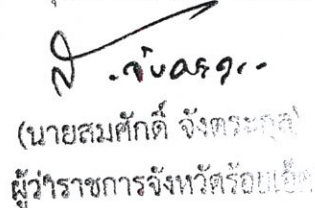 (นายสมศักดิ์ จังตระกุล)
ผู้ว่าราชการจังหวัดร้อยเอ็ด